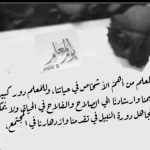 يوم المعلم
لمعلم من أهم الأشخاص في حياتنا، وللمعلم دور كبير
منا وإرشادنا الى الصلاح والفلاح في الحياة ولا يمكن
جاهل دوره النبيل في تقدمنا وازدهارنا في المجتمع.